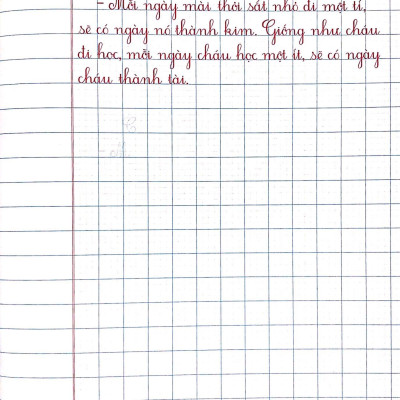 - Mỗi ngày mài thỏi sắt nhỏ đi một tí,
sẽ có ngày nó thành kim. Giống như cháu
đi học, mỗi ngày cháu học một ít, sẽ có ngày
cháu thành tài.